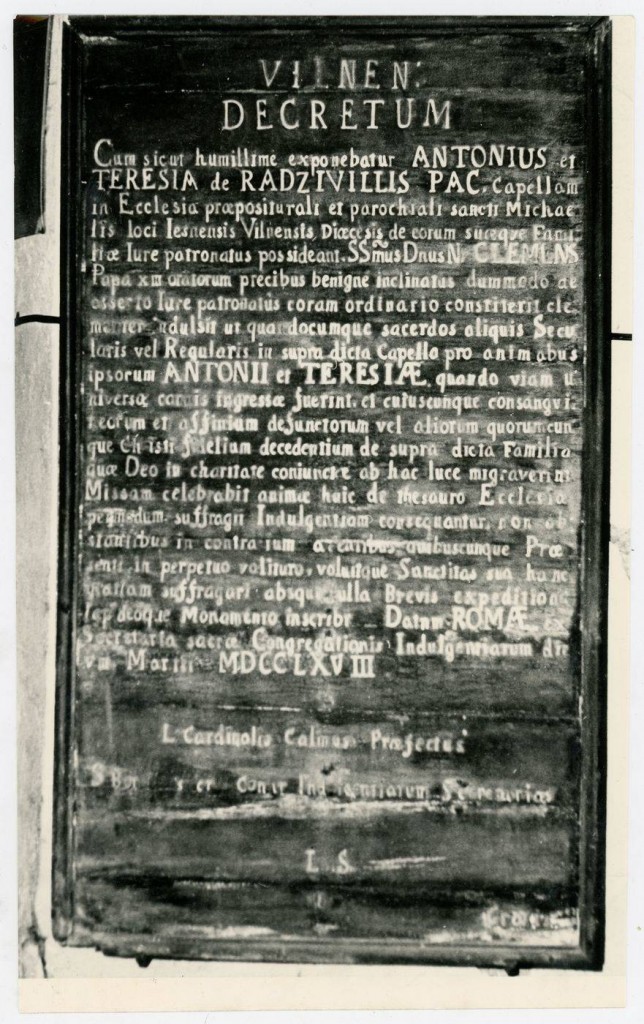 VILNEN:
DECRETUM
Cum sicut humillime exponebatur ANTONIUS et
TERESIA de RADZIVILLIS PAC. Capellam
in Ecclesia præpositurali et parochiali sancti Michae
lis loci Iesnensis Vilnensis Diœcesis de eorum sueque Fami
liæ Iure patronatus possideant. SSmus Dnus N. CLEMENS
Papa XIII oratorum precibus benigne inclinatus dummodo de
asserto Iure patronatus coram ordinario constiterit cle
menter indulsit ut quandocumque sacerdos aliquis Secu
laris vel Regularis in supra dicta Capella pro animabus
ipsorum ANTONII et TERESIÆ, quando viam u
niversæ carnis ingressæ fuerint, et cuiuscunque consangvi
neorum et affinium defunctorum vel aliorum quorumcun
que Christi fidelium decedentium de supra dicta Familia
quæ Deo in charitate coniunctæ ab hac luce migraverint
Missam celebrabit animæ huic de thesauro Ecclesiæ
per modum suffragii Indulgentiam consequantur. non ob
stantibus in contrarium quibuscunque Præ
senti in perpetuo valituro, voluitque Sanctitas sua hanc
gratiam suffragari absque ulla Brevis expeditione
Monumento inscribi Datum ROMÆ ex
Secretaria sacræ Congregationis Indulgentiarum die
Martii MDCCLXVIII
L Cardinalis Calinus Præfectus
S. Secretarius
L S